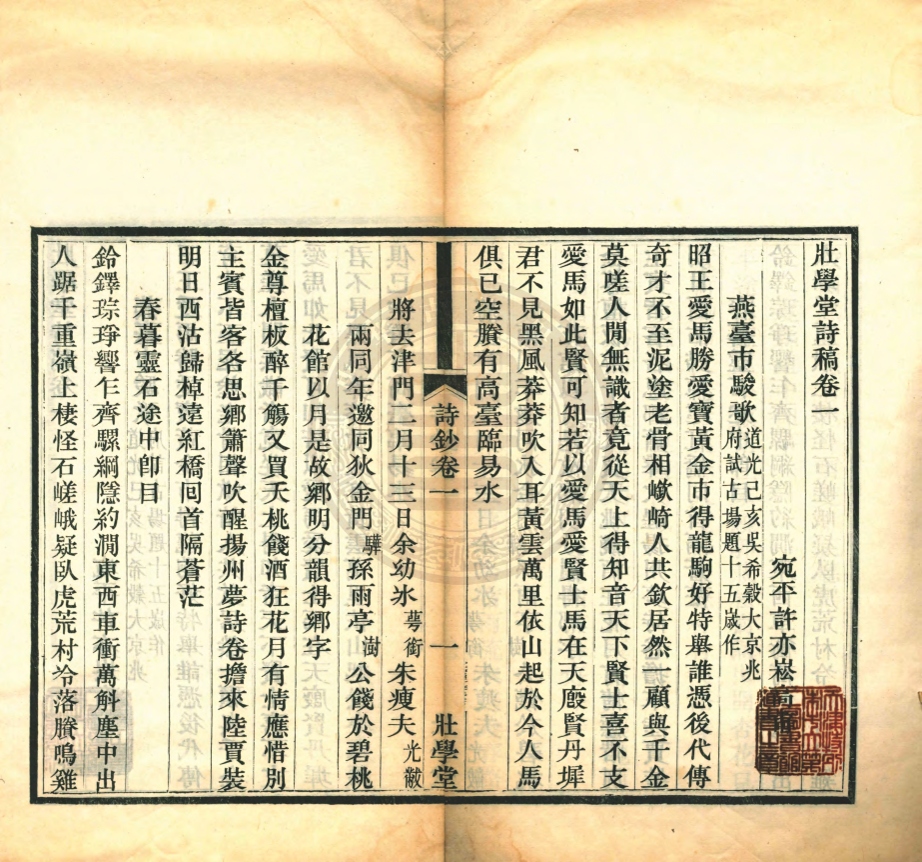 壯學堂詩稿卷一
宛平許亦崧
燕臺市駿歌道光己亥吳希穀大京兆
府試古場題十五歲作
昭王愛馬勝愛寶黃金市得龍駒好特舉誰憑後代傳
奇才不至泥塗老骨相嶔崎人共欽居然一顧與千金
莫嗟人閒無識者竟從天上得知音天下賢士喜不支
愛馬如此賢可知若以愛馬愛賢士馬在天廏賢丹墀
君不見黑風莽莽吹入耳黃雲萬里依山起於今人馬
俱已空賸有高臺臨易水
詩鈔卷一
一
壯學堂
將去津門二月十三日余幼冰蕚銜朱瘦夫光黻
兩同年邀同狄金門驊孫雨亭澍公餞於碧桃
花館以月是故鄉明分韻得鄉字
金尊檀板醉千觴又買夭桃餞酒狂花月有情應惜別
主賓皆客各思鄉簫聲吹醒揚州夢詩卷擔來陸賈裝
明日西沽歸棹遠紅橋囘首隔蒼茫
春暮靈石途中卽目
鈴鐸琮琤響乍齊騾綱隱約澗東西車衝萬斛塵中出
人踞千重嶺上棲怪石嵯峨疑臥虎荒村冷落賸鳴雞